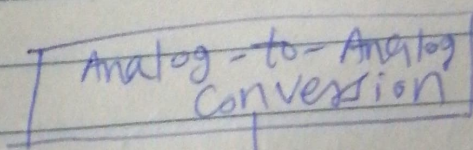 Analog-to-Analog
Conversion